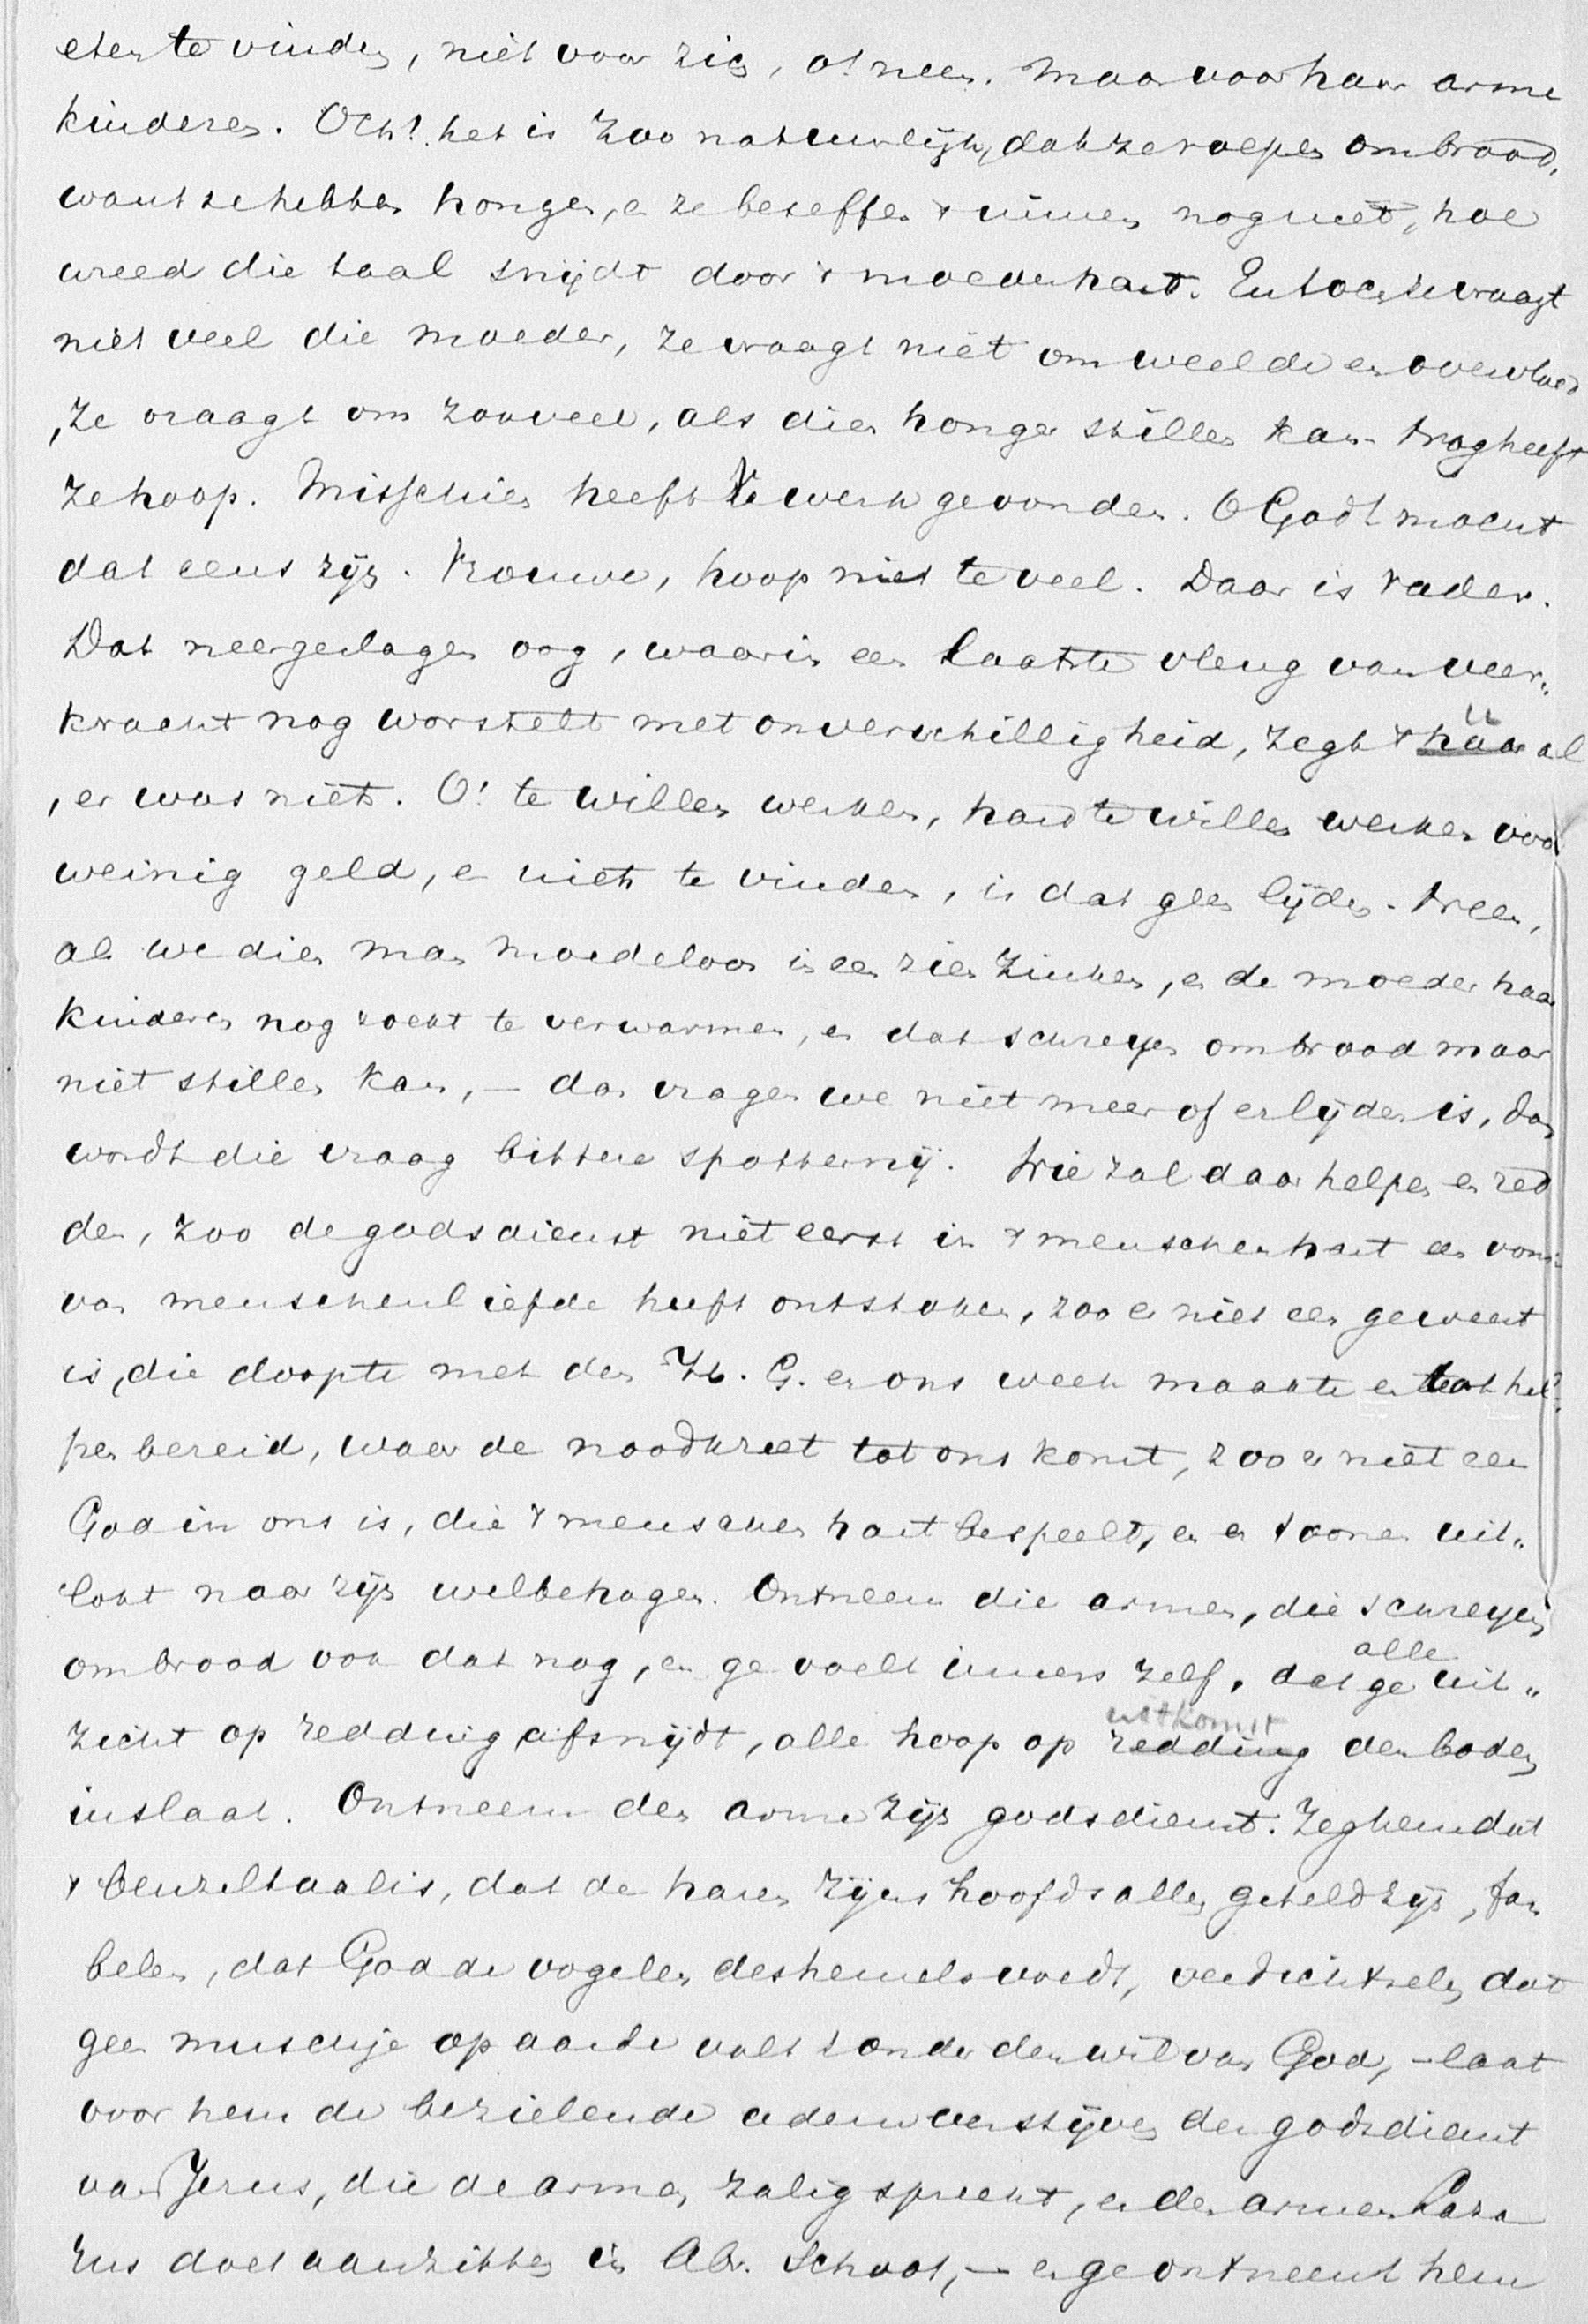 eten te vinden, niet voor zich, o! neen. Maar voor haar arme
kinderen. Och! het is zoo natuurlijk, dat ze roepen om brood,
want ze hebben honger, en ze beseffen 't immers nog niet, hoe
wreed die taal snijdt door 't moederhart. En toch ze vraagt
niet veel die moeder, ze vraagt niet om weelde en overvloed
, ze vraagt om zooveel, als dien honger stillen kan. Nog heeft
ze hoop. Misschien heeft V. werk gevonden. O God! mocht
dat eens zijn. Vrouwe, hoop niet te veel. Daar is vader.
Dat neergeslagen oog, waarin een laatste vleug van veer„
kracht nog worstelt met onverschilligheid, zegt 't háár al
, er was niets. O! te willen werken, hard te willen werken voor
weinig geld, en niets te vinden, is dat geen lijden. Neen,
als we dien man moedeloos ineen zien zinken, en de moeder haar
kinderen nog zoekt te verwarmen, en dat schreyen om brood maar
niet stillen kan, – dan vragen we niet meer of er lijden is, dan
wordt die vraag bittere spotternij. Wie zal daar helpen en red
den, zoo de godsdienst niet eerst in 't menschenhart een vonk
van menschenliefde heeft ontstoken, zoo er niet een geweest
is, die doopte met den H. G. en ons week maakte en tot hel„
pen bereid, waar de noodkreet tot ons komt, zoo er niet een
God in ons is, die 't menschenhart bespeelt, en er toonen uit„
lokt naar zijn welbehagen. Ontneem die armen, die schreyen
om brood ook dat nog, en ge voelt immers zelf, dat ge alle uit„
zicht op redding afsnijdt, alle hoop op redding uitkomst den bodem
inslaat. Ontneem den arme zijn godsdienst. Zeg hem dat
't beuzeltaal is, dat de haren zijns hoofds allen geteld zijn, fa„
belen, dat God de vogelen des hemels voedt, verdichtselen dat
geen muschje op aarde valt zonder den wil van God, – laat
voor hem de bezielende adem verstijven der godsdienst
van Jezus, die de armen zalig spreekt, en den armen Laza
rus doet aanzitten in Abr. Schoot, – en ge ontneemt hem